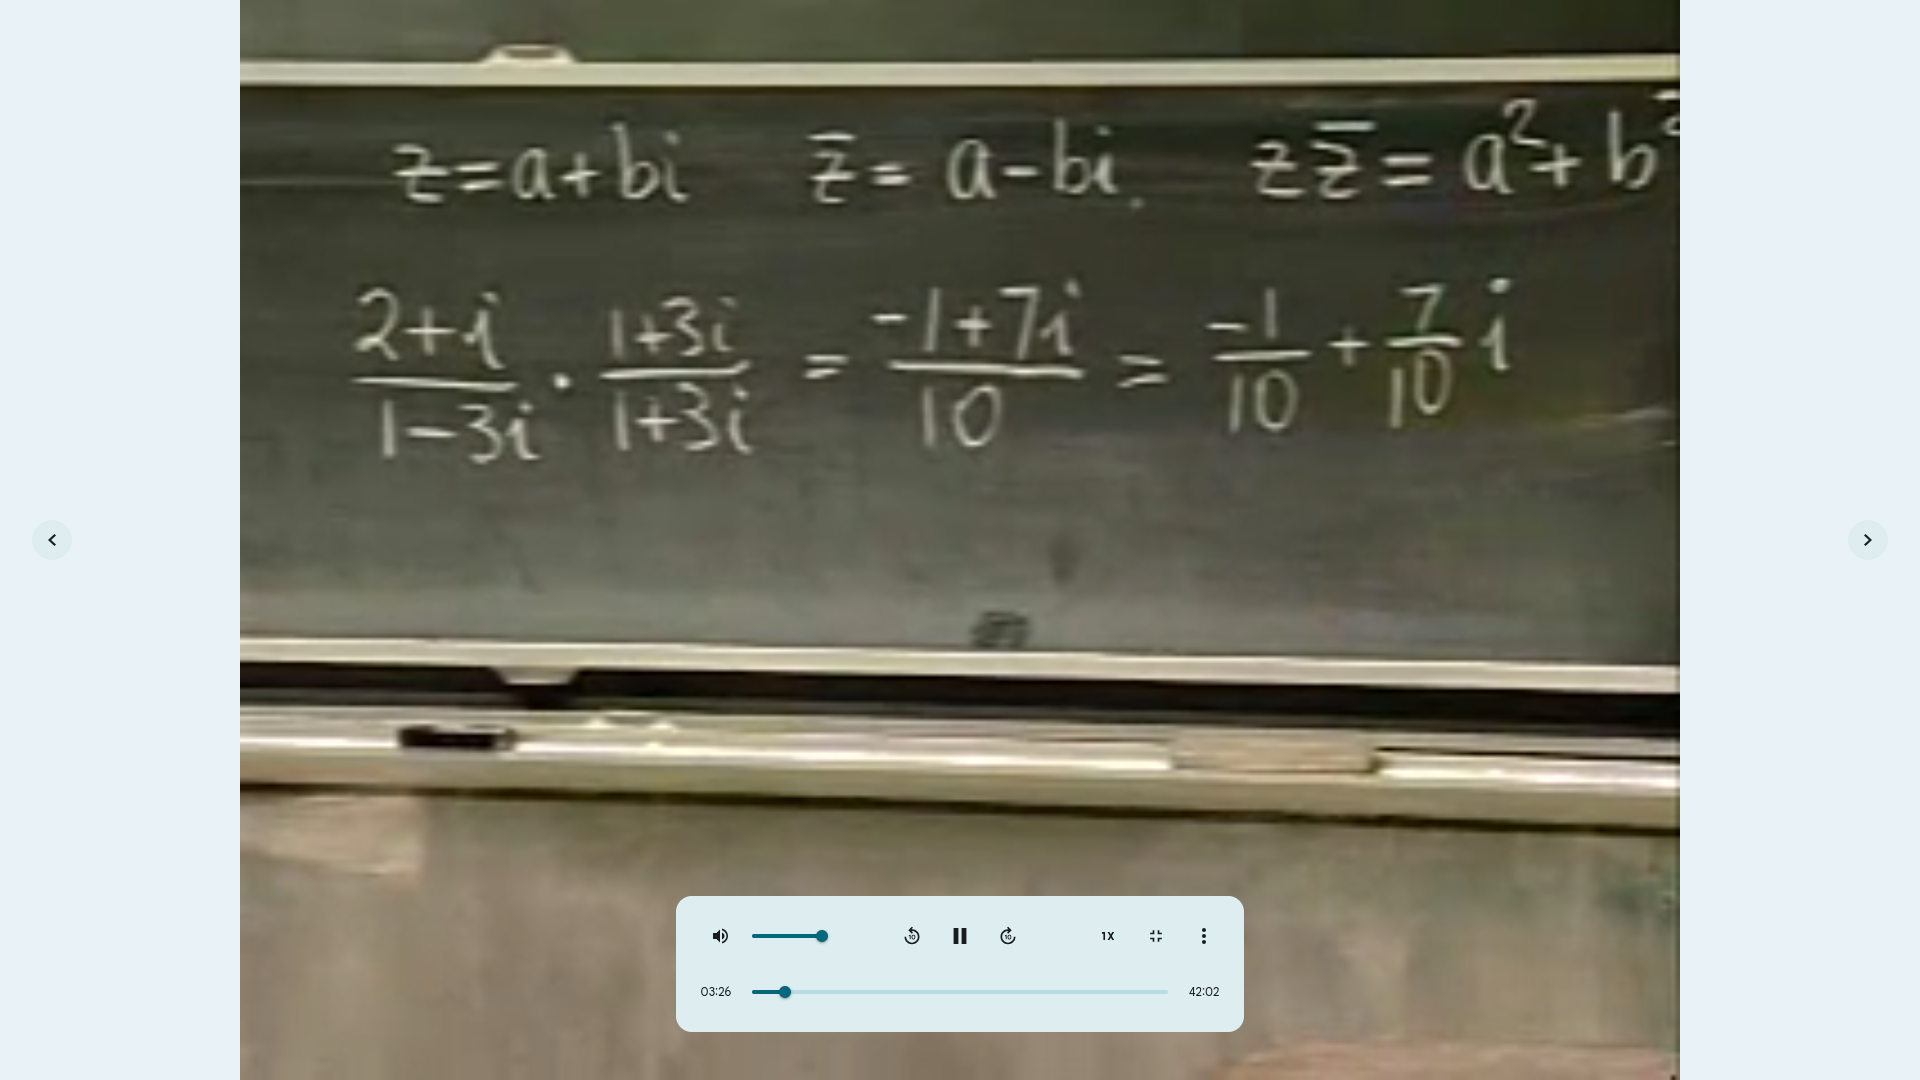 z = a + bi   z̄ = a - bi.   zz̄ = a² + b²
(2+i)/(1-3i) · (1+3i)/(1+3i) = (-1+7i)/10 = -1/10 + 7/10 i
1X
03:26 42:02